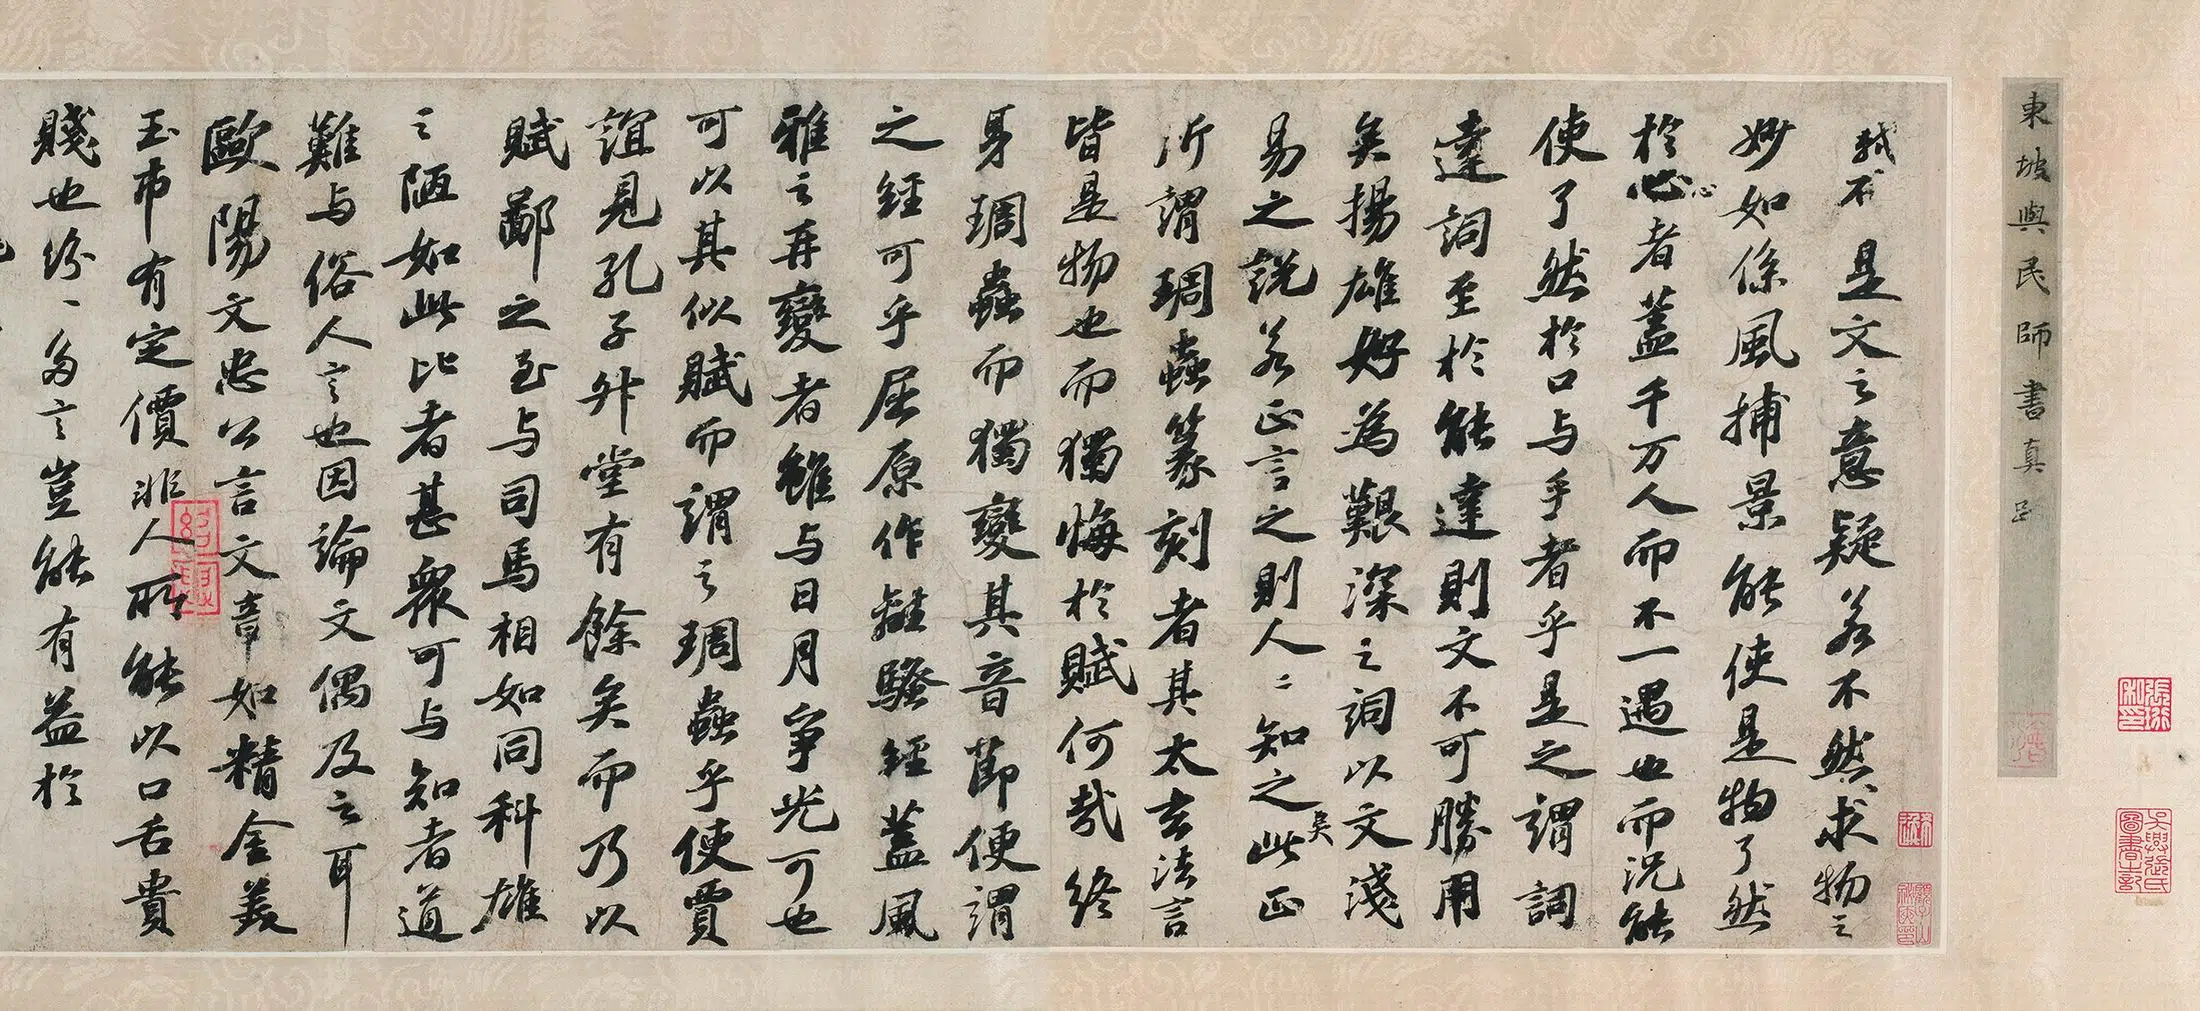 東坡與民師書真跡
是文之意疑若不然求物之
妙如係風捕景能使是物了然
於心者蓋千万人而不一遇也而况能
使了然於口与手者乎是之謂詞
達詞至於能達則文不可勝用
矣揚雄好為艱深之詞以文淺
易之説若正言之則人〻知之矣此正
所謂琱蟲篆刻者其太玄法言
皆是物也而獨悔於賦何哉終
身琱蟲而獨變其音節便謂
之經可乎屈原作離騷經蓋風
雅之再變者雖与日月爭光可也
可以其似賦而謂之琱蟲乎使賈
誼見孔子升堂有餘矣而乃以
賦鄙之至与司馬相如同科雄
之陋如此比者甚衆可与知者道
難与俗人言也因論文偶及之耳
歐陽文忠公言文章如精金美
玉市有定價非人所能以口舌貴
賤也紛〻多言豈能有益於